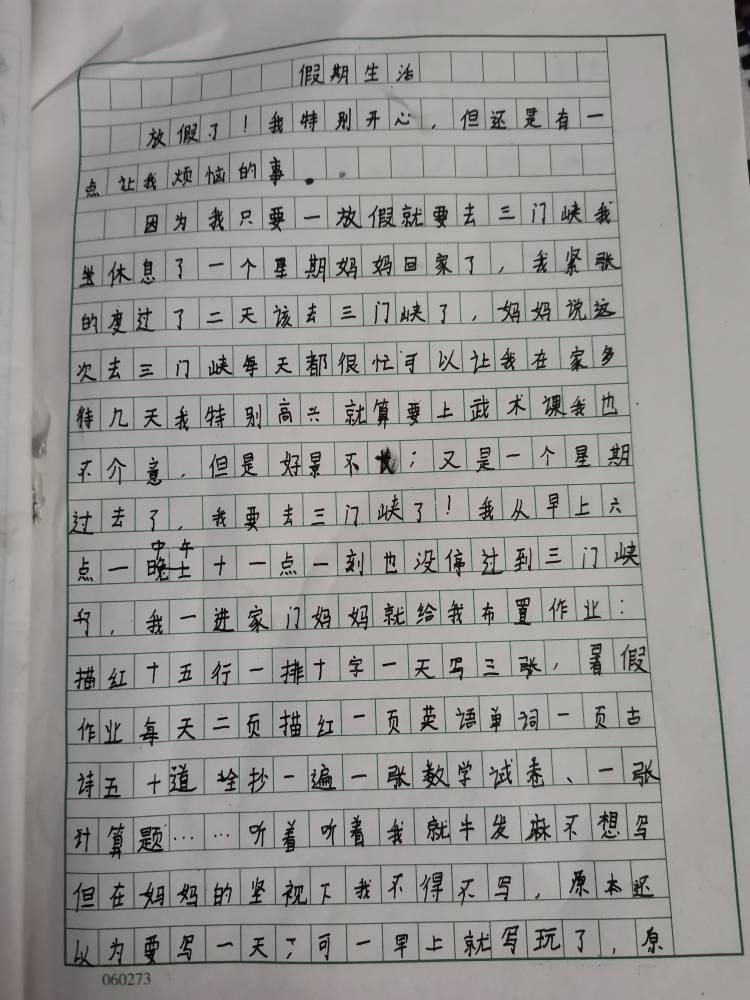 假期生活
放假了！我特别开心，但还是有一
点让我烦恼的事。
因为我只要一放假就要去三门峡我
坐休息了一个星期妈妈回家了，我紧张
的度过了二天该去三门峡了，妈妈说这
次去三门峡每天都很忙可以让我在家多
待几天我特别高兴就算要上武术课我也
不介意，但是好景不；又是一个星期
过去了，我要去三门峡了！我从早上六
中午
点一晚士十一点一刻也没停过到三门峡
，我一进家门妈妈就给我布置作业：
描红十五行一排十字一天写三张，暑假
作业每天二页描红一页英语单词一页古
诗五十道全抄一遍一张数学试卷、一张
计算题……听着听着我就牛发麻不想写
但在妈妈的坚视下我不得不写，原本还
以为要写一天；可一早上就写玩了，原
060273